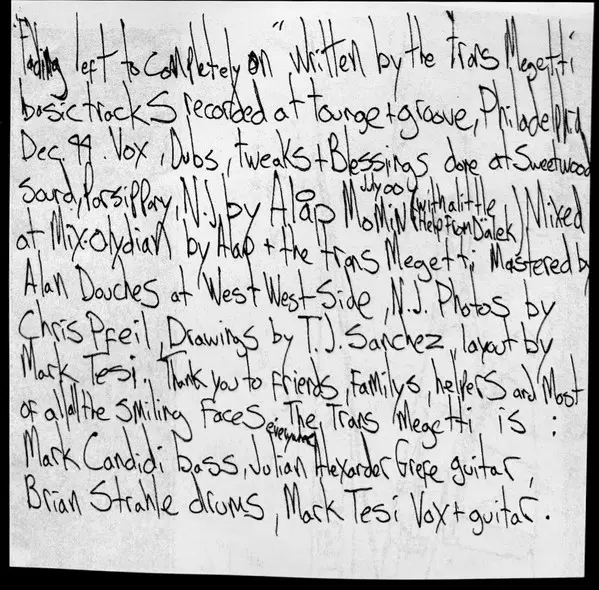 "Fading left to completely on" written by the Trans Megetti
basic tracks recorded at Tounge + groove, Philadelphia
Dec. 99. Vox, Dubs, tweaks + Blessings done at Sweetwood
sound, Parsippany, N.J. by Alap Momin July 00 (with a little Help From Dälek) Mixed
at Mix-olydian by Alap + the trans Megetti Mastered by
Alan Douches at West West Side, N.J. Photos by
Chris Pfeil, Drawings by T.J. Sanchez, layout by
Mark Tesi, Thank you to friends, familys, helpers and Most
of all all the smiling faces everywhere. The Trans Megetti is :
Mark Candidi bass, Julian Alexander Grefe guitar,
Brian Strahle drums, Mark Tesi Vox + guitar.